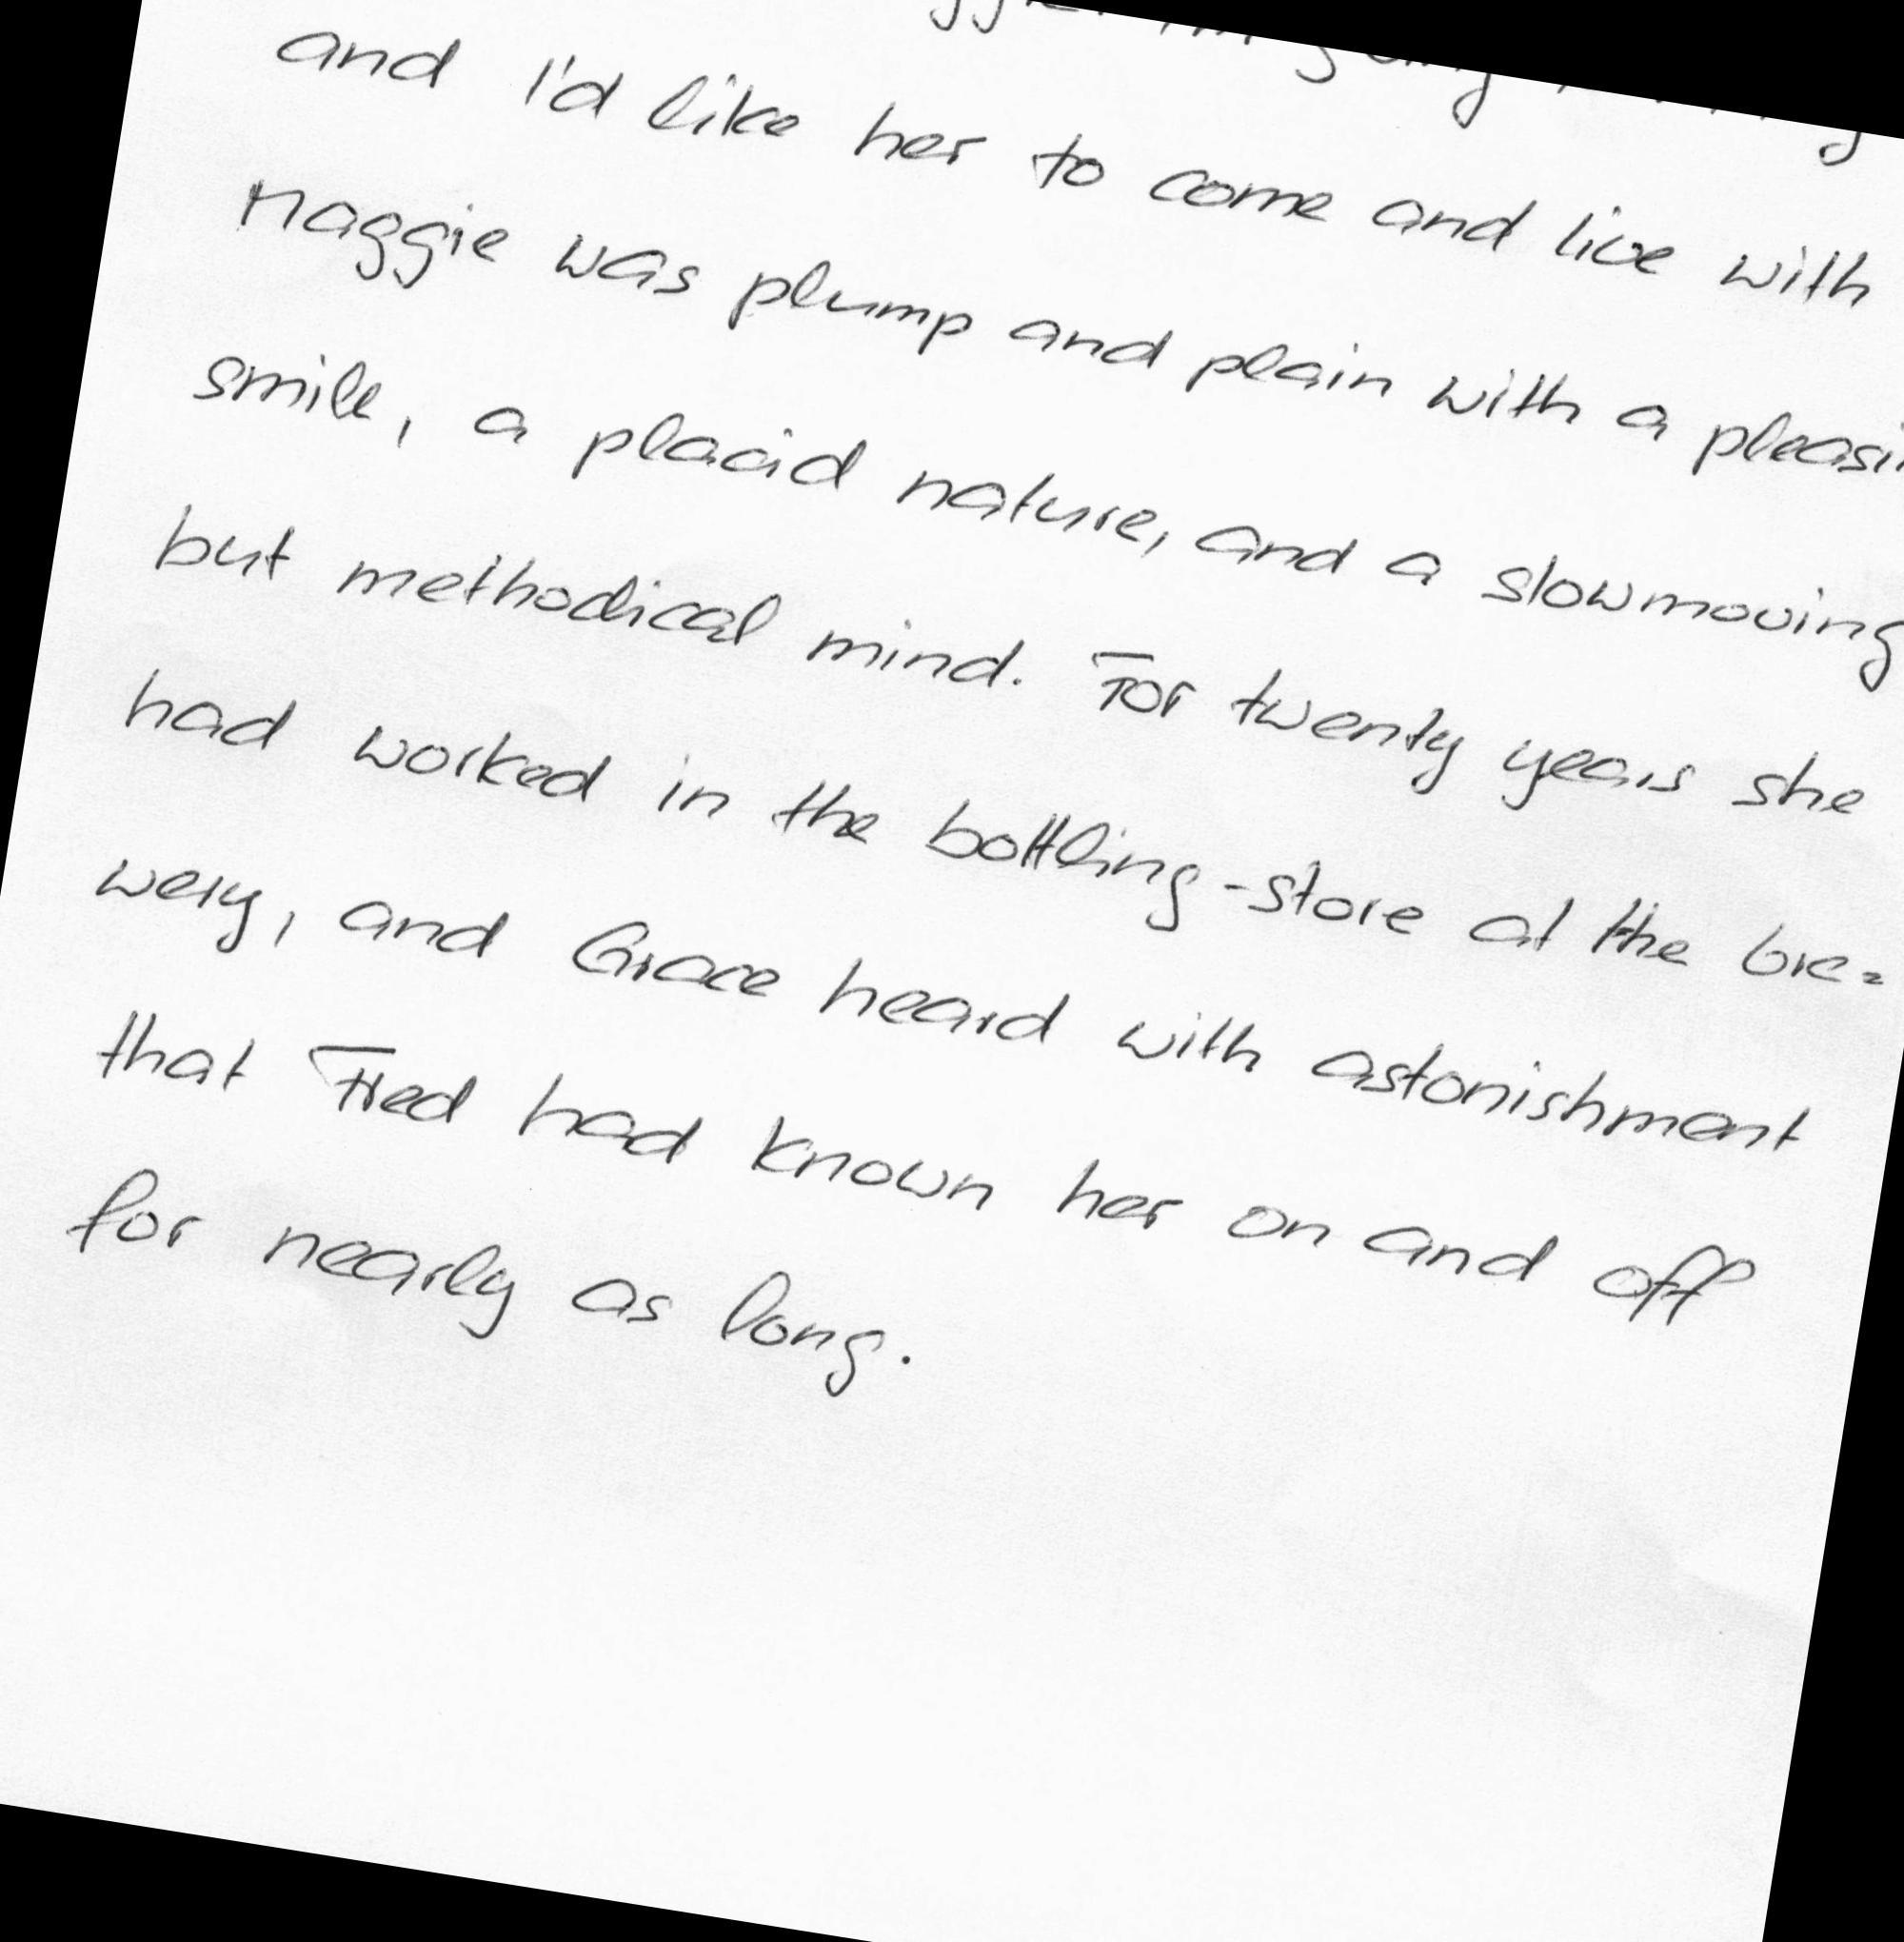 and I'd like her to come and live with
Maggie was plump and plain with a
smile, a placid nature, and a slowmoving
but methodical mind. For twenty years she
had worked in the bottling-store at the bre=
wery, and Grace heard with astonishment
that Fred had known her on and off
for nearly as long.